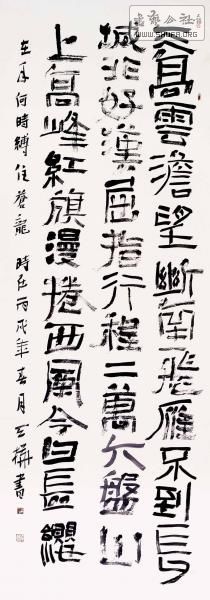 天高雲澹望斷南飛雁不到長
城非好漢屈指行程二萬六盤山
上高峰紅旗漫捲西風今日長纓
在手何時縛住蒼龍 時在丙戌年春月 書
公社
www.SHUFA.ORG